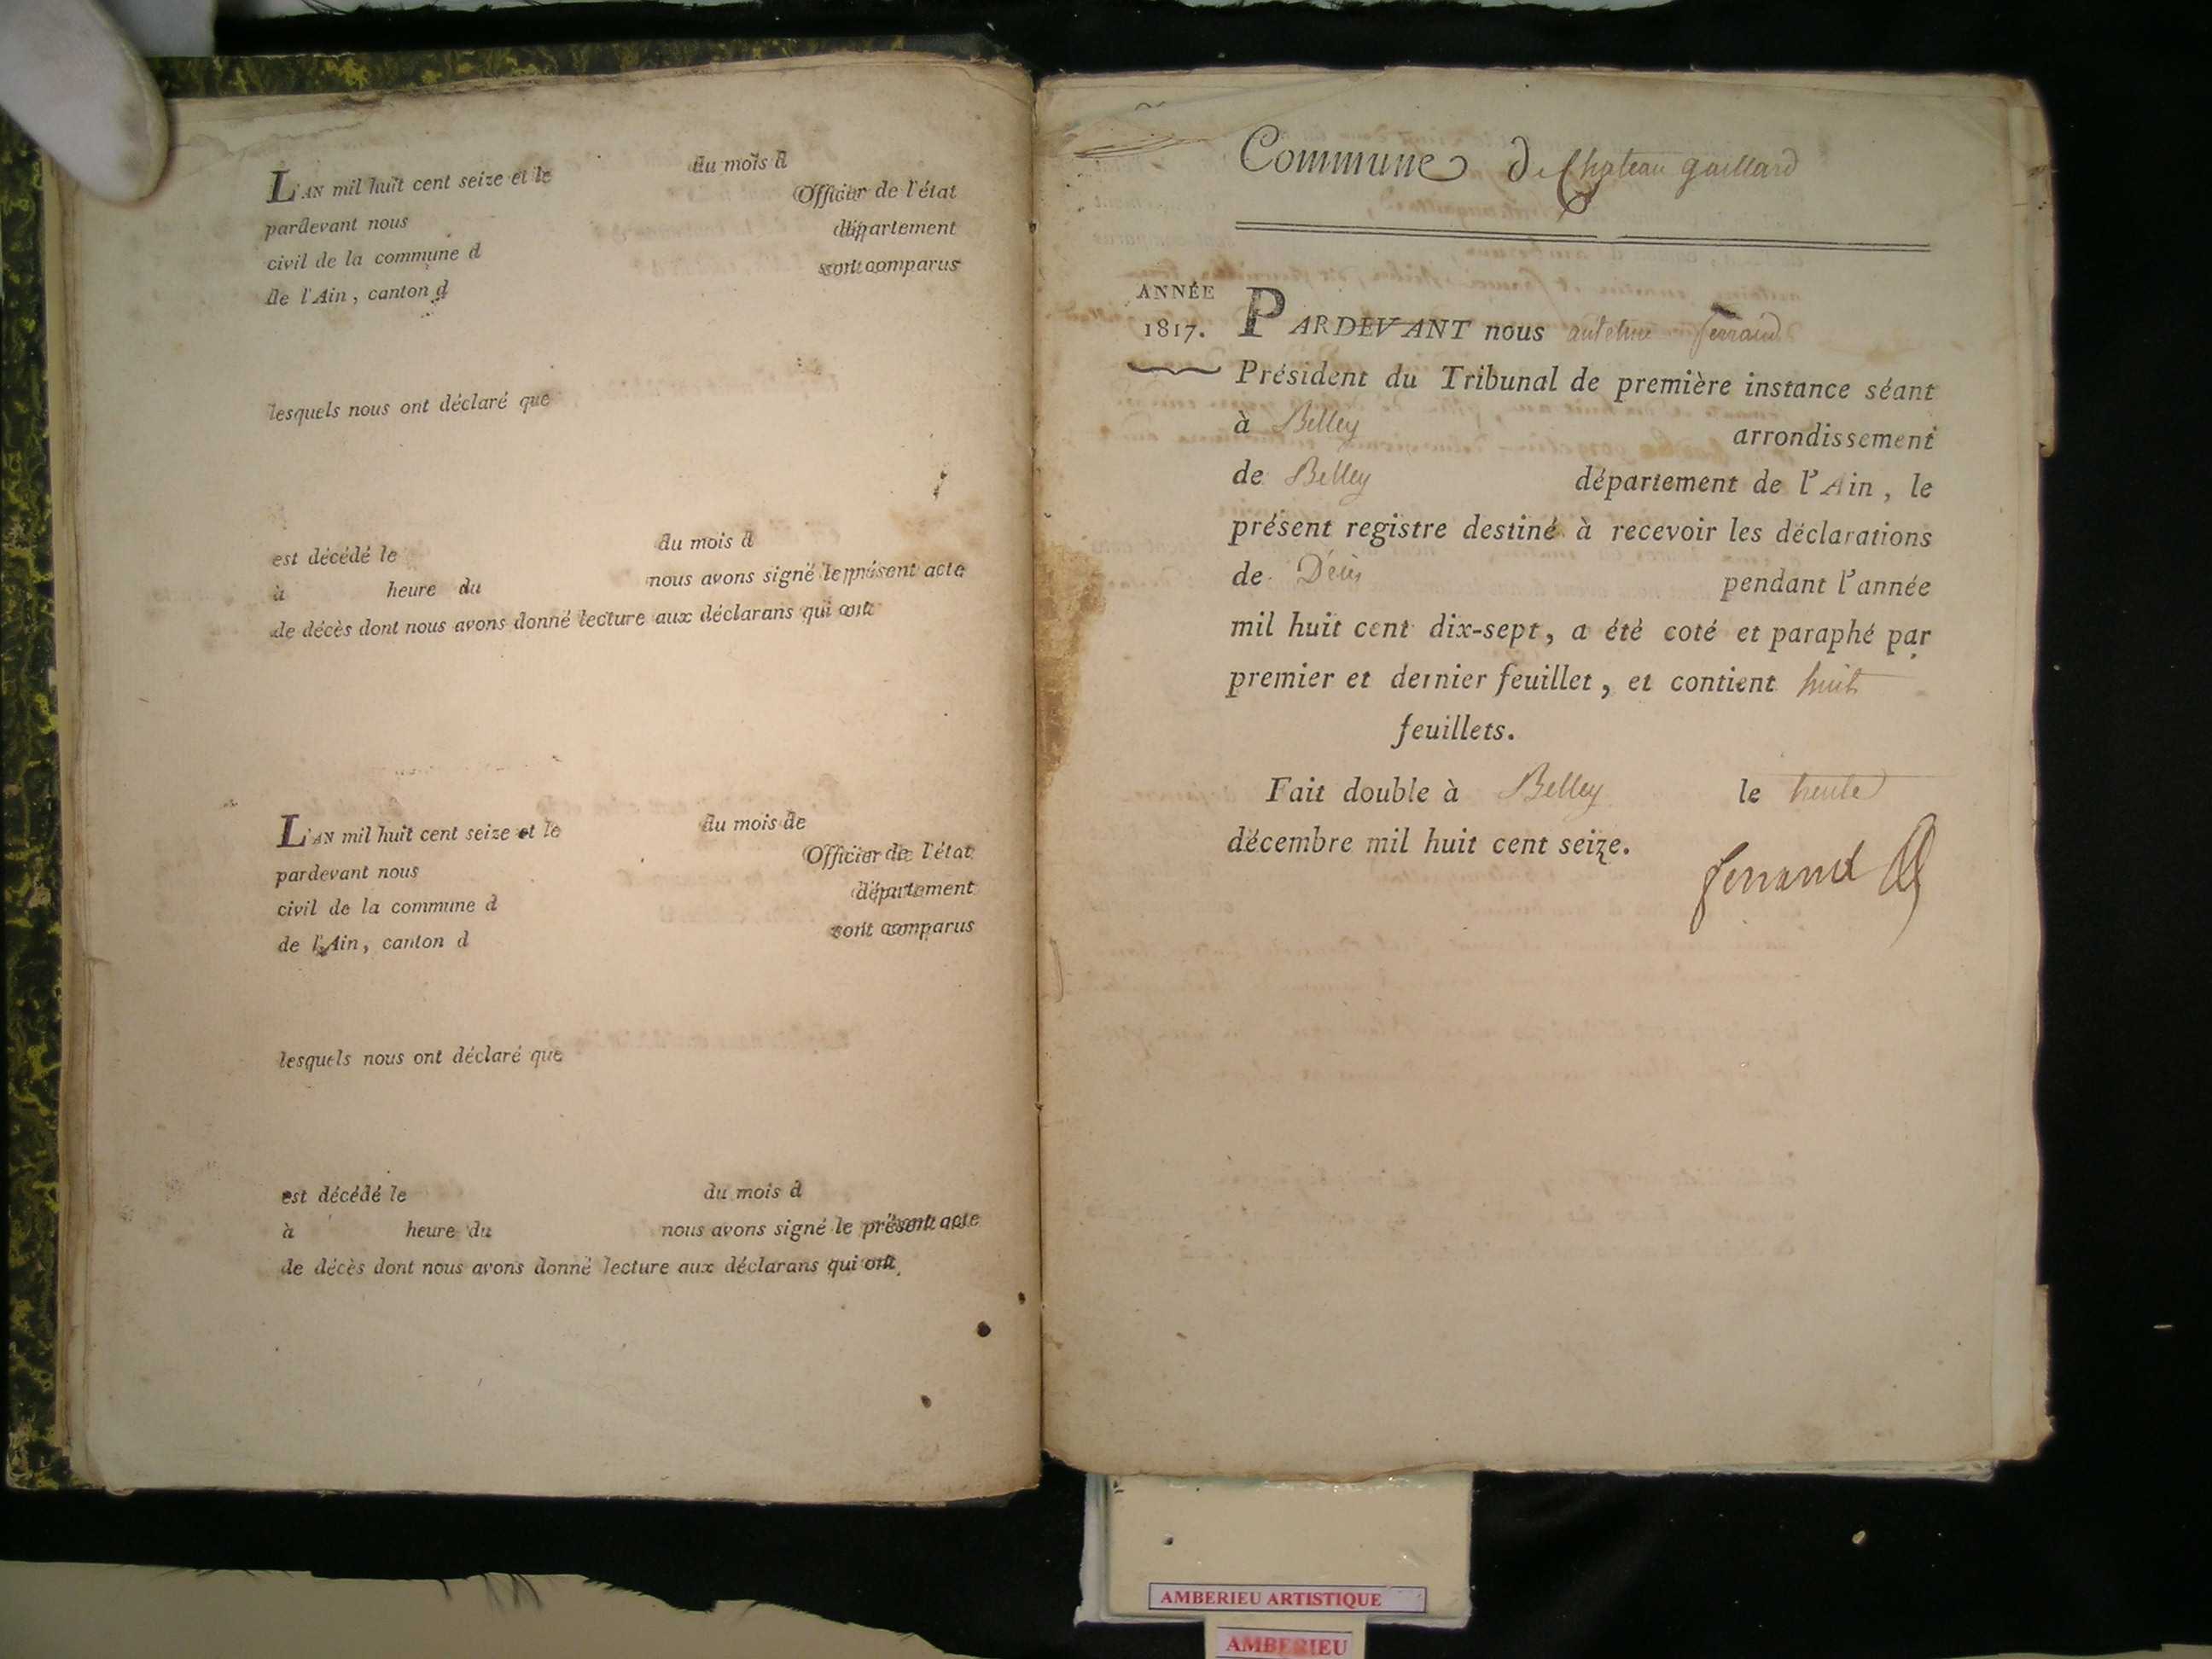 L'AN mil huit cent seize et le du mois d
pardevant nous Officier de l'état
civil de la commune d département
de l'Ain, canton d sont comparus
lesquels nous ont déclaré que
est décédé le du mois d
à heure du nous avons signé le présent acte
de décès dont nous avons donné lecture aux déclarans qui ont
L'AN mil huit cent seize et le du mois de
pardevant nous Officier de l'état
civil de la commune d département
de l'Ain, canton d sont comparus
lesquels nous ont déclaré que
est décédé le du mois d
à heure du nous avons signé le présent acte
de décès dont nous avons donné lecture aux déclarans qui ont
Commune de Chateau gaillard
ANNÉE
1817.
PARDEVANT nous antelme ferrand
Président du Tribunal de première instance séant
à Belley arrondissement
de Belley département de l'Ain, le
présent registre destiné à recevoir les déclarations
de Décès pendant l'année
mil huit cent dix-sept, a été coté et paraphé par
premier et dernier feuillet, et contient huit
feuillets.
Fait double à Belley le trente
décembre mil huit cent seize.
ferrand
AMBERIEU ARTISTIQUE
AMBERIEU